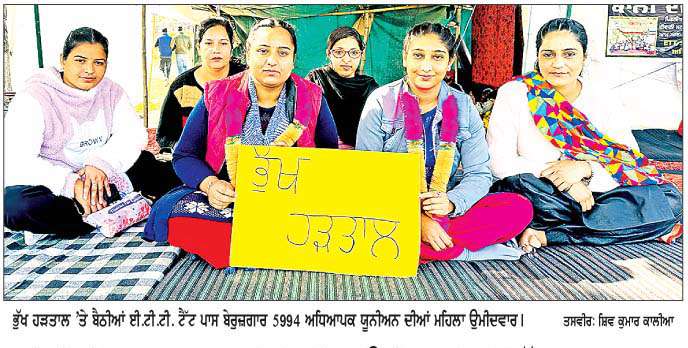 BROWN
ਭੁੱਖ
ਹੜਤਾਲ
ਭੁੱਖ ਹੜਤਾਲ 'ਤੇ ਬੈਠੀਆਂ ਈ.ਟੀ.ਟੀ. ਟੈੱਟ ਪਾਸ ਬੇਰੁਜ਼ਗਾਰ 5994 ਅਧਿਆਪਕ ਯੂਨੀਅਨ ਦੀਆਂ ਮਹਿਲਾ ਉਮੀਦਵਾਰ। ਤਸਵੀਰ: ਸ਼ਿਵ ਕੁਮਾਰ ਕਾਲੀਆ